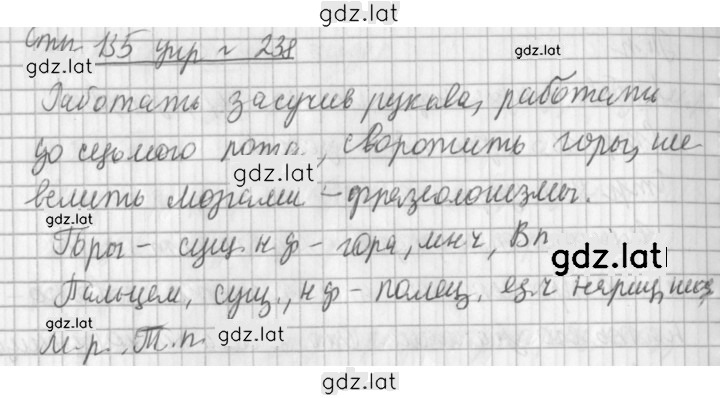 gdz.lat
Стп 135 упр № 238
gdz.lat
gdz.lat
Работать засучив рукава, работать
до седьмого пота, своротить горы, ше
gdz.lat
велить мозгами - фразеологизмы.
gdz.lat
Горы - сущ. н ф - гора, мн ч, В п
gdz.lat
Пальцем, сущ., н ф - палец, ед. ч
gdz.lat
м. р. Т. п.
gdz.lat
gdz.lat